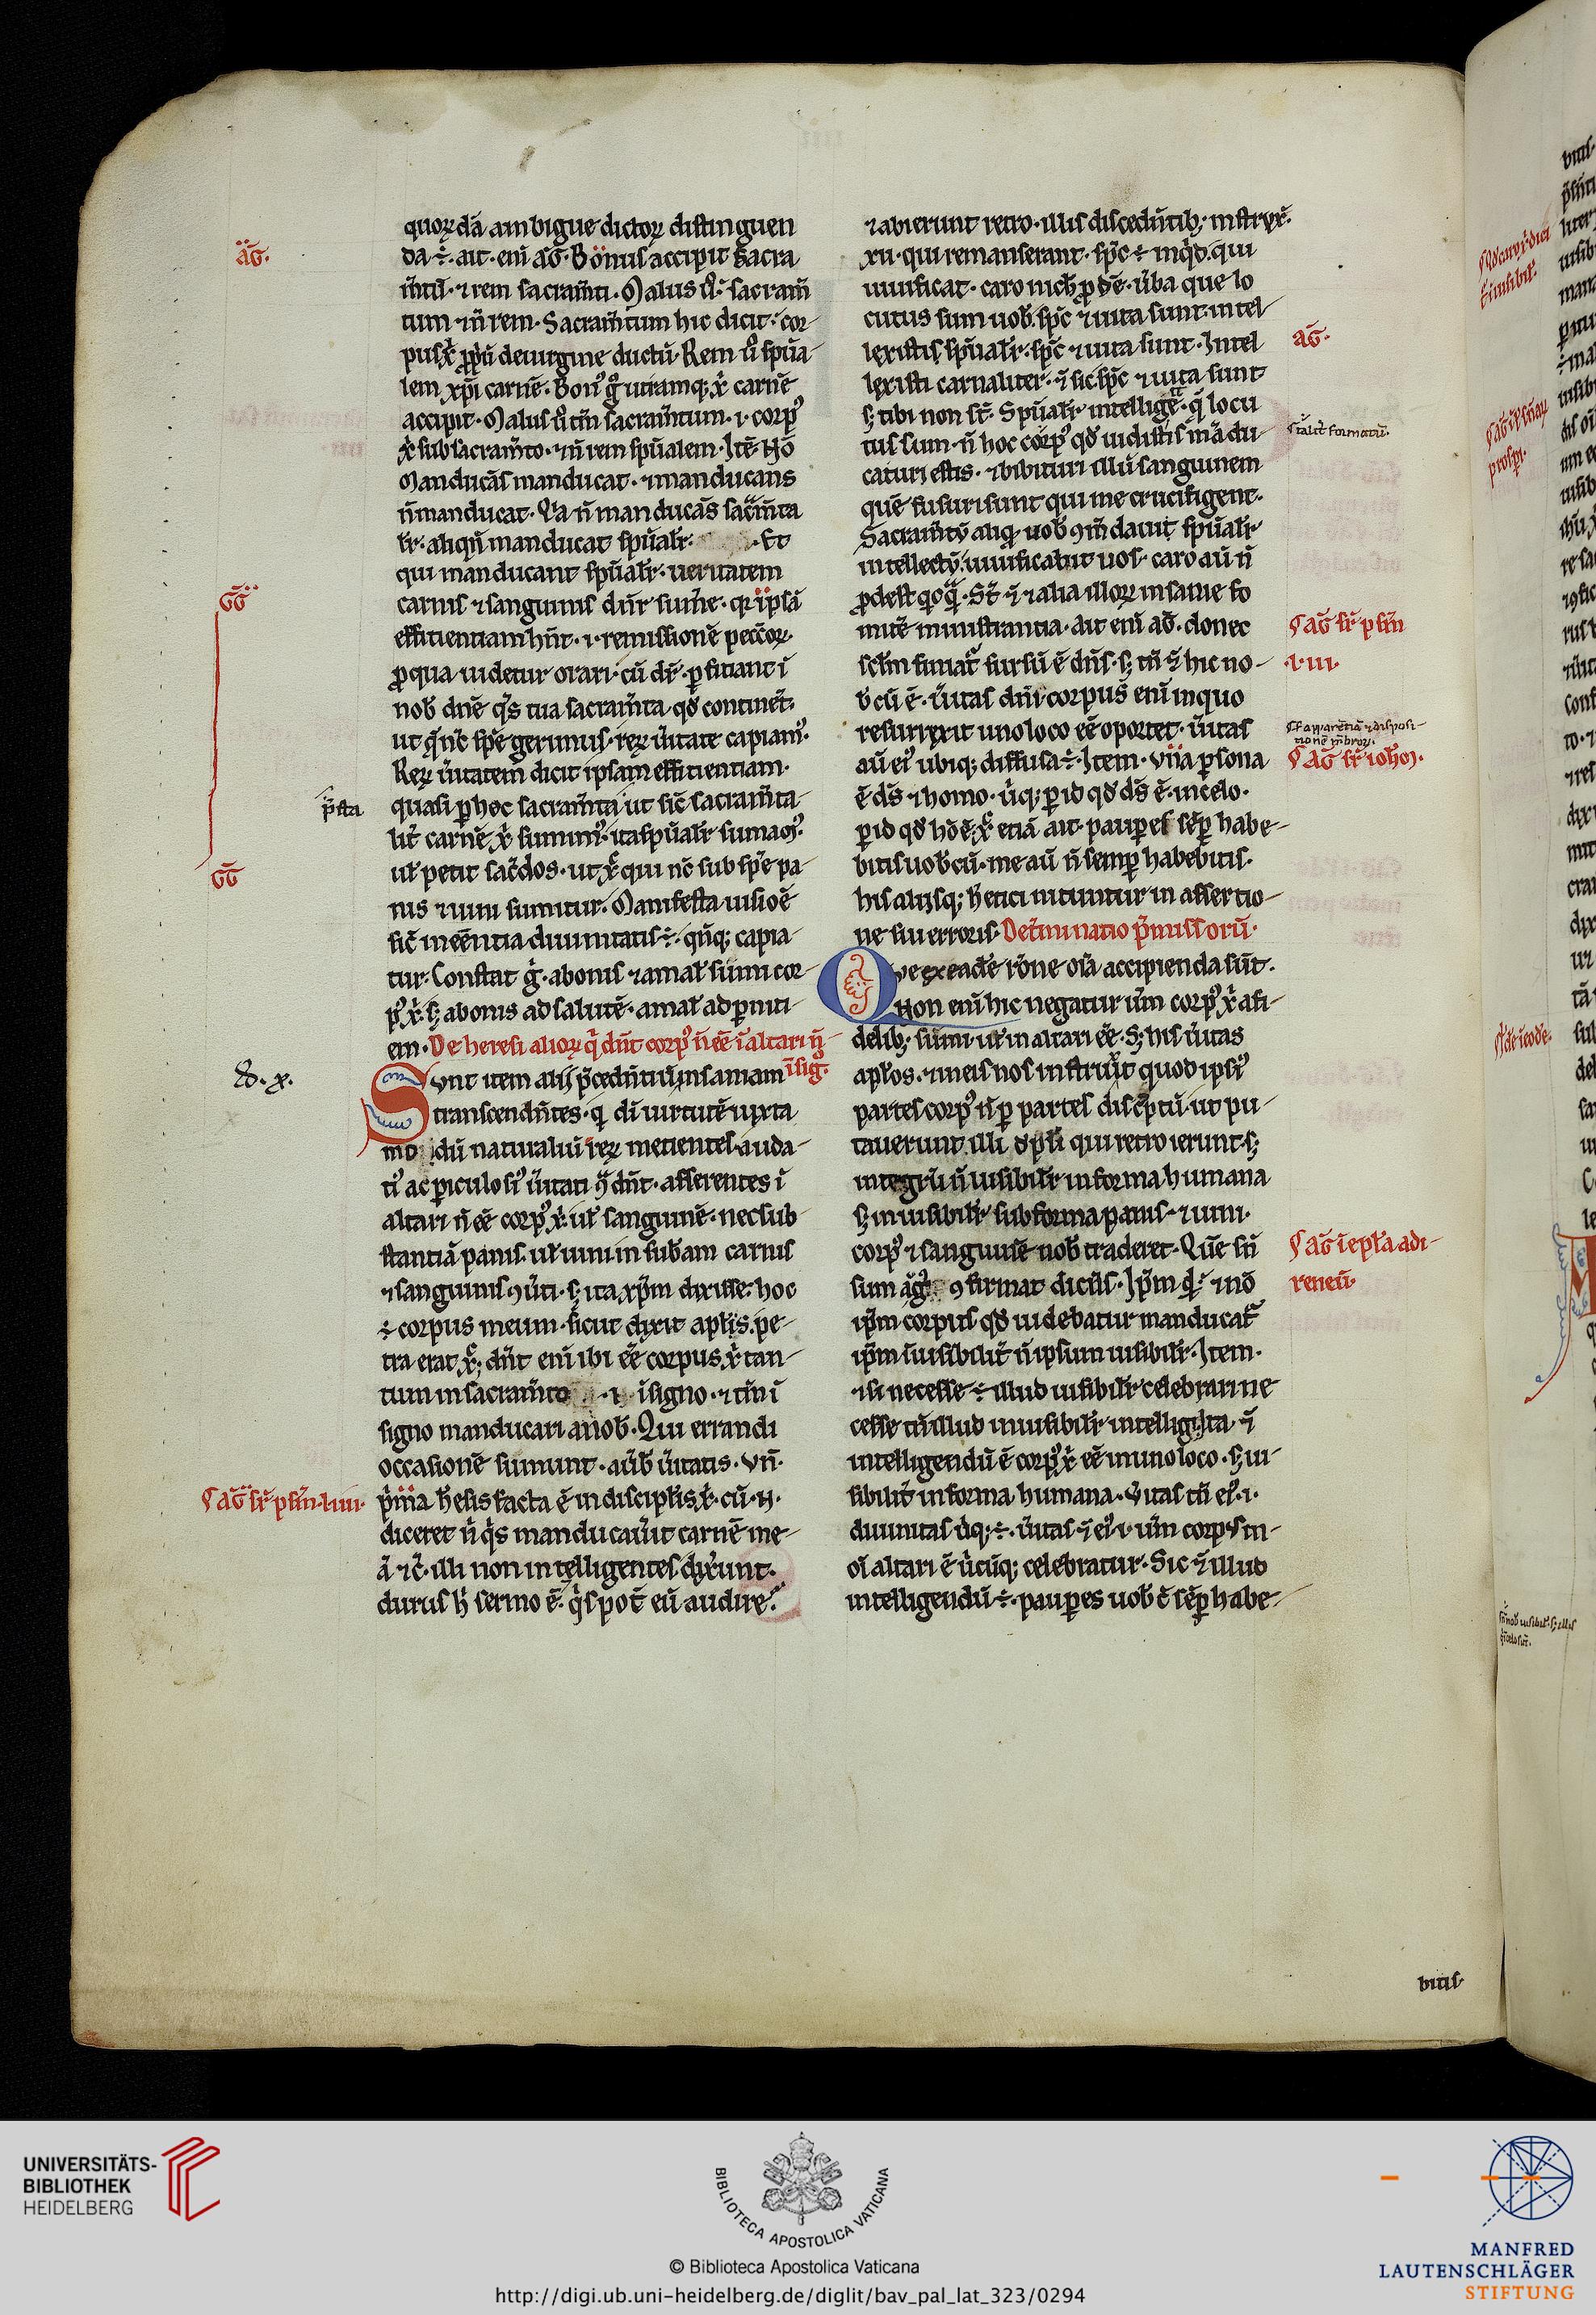 quoꝝdā ambigue dictoꝝ distinguen
da ē. ait. eni aḡ. Bonus accipit sacra
m̄tū. ⁊ rem sacram̄ti. Malus ů. sacram̄
tum ⁊ ñ rem. Sacram̄tum hic dicit. cor
lem xp̄i carnē. bonꝰ gͦ utramqꝫ xͥ carnē
accipit. Malus ů tm̄ sacram̄tum .i. corpꝰ
xͥ sub sacram̄to. ⁊ ñ rem spūalem. Itē
Manducās manducat. ⁊ manducans
ñ manducat. Qͥa ñ manducās sac̄m̄ta
lr̄. aliqn̄ manducat spūalr̄. Et
qui manducant spūalr̄. ueritatem
carnis ⁊ sanguinis dn̄r sum̄e. qꝛ ip̄sā
efficientiam hn̄t. i. remissionē pecc̄oꝝ.
ꝓ qua uidetur orari. cū dr̄. ꝑficiant ī
nob̄ dn̄e qͦs tua sacram̄ta. qđ continēt.
ut qͣ nc̄ spē gerimus. reꝝ ůitate capiamꝰ.
Reꝝ ůitatem dicit ipsam efficientiam.
quasi ꝑ hoc sacram̄ta ut sic̄ sacram̄ta
lit̄ carnē xͥ sumimꝰ. ita spūalr̄ sumamꝰ.
ul̄ petit sac̄dos. ut xͨ qui nc̄ sub spē pa
nis ⁊ uini sumitur. Manifesta uisioē
sic̄ in eēntia diuinitatis ē. qn̄qꝫ capia
tur. Constat gͦ. a bonis ⁊ a mal̄ sumi cor
pꝰ xͥ. sꝫ a bonis ad salutē. a mal̄ ad ꝑnici
em. De heresi alioꝝ qͥ dn̄t corpꝰ xͥ ñ eē ī altari ñ
ī sig̊.
Sunt item alij p̄cedn̄tiū insaniam
transcendn̄tes. qͥ dī uirtutē iuxta
modū naturaliū reꝝ metientes. auda
tiꝰ ac ꝑiculosiꝰ ůitati 9ͣdn̄t. asserentes ī
altari ñ eē corpꝰ xͥ. ul̄ sanguinē. nec sub
stantiā panis. ul̄ uini in sub̄am carnis
⁊ sanguinis 9ůti. sꝫ ita xp̄m dixisse. hoc
ē corpus meum. sicut dixit apl̄s. pe
tra erat xͨ. dn̄t eni ibi eē corpus xͥ tan
tum in sacram̄to .i. ī signo. ⁊ tm̄ ī
signo manducari a nob̄. Qui errandi
occasionē sumunt. a ůb̄ ůitatis. Vn̄.
pͥma h̄esis facta ē in discipl̄is xͥ. cū
diceret ñ qͥs manducaůit carnē me
ā ⁊c̄. illi non intelligentes dix̄unt.
durus h̄ sermo ē. qͥs pot̄ eū audire.
⁊ abierunt retro. illis discedn̄tibꝫ. instrux̄.
xii. qui remanserant. sp̄c ē inqͥd. qui
uiuificat. caro nich̄ ꝓdē. ůba que lo
cutus sum uob̄. sp̄c ⁊ uita sunt. intel
lexistis spūalr̄. sp̄c ⁊ uita sunt. Intel
lexisti carnaliter. ⁊ sic sp̄c ⁊ uita sunt
sꝫ tibi non st̄. Spūalr̄ intelligē. q̄ locu
tus sum. ñ hoc corpꝰ qđ uidistis mādu
caturi estis. ⁊ bibituri illū sanguinem
quē fusuri sunt qui me crucifigent.
Sacram̄tū aliqđ uob̄ 9m̄daui. spūalr̄
intellectū. uiuificabit uos. caro aū ñ
ꝓdest qͥcqͣ. St̄ ⁊ alia illoꝝ insanie fo
mitē ministrantia. ait eni aḡ. donec
sclm̄ finiat̄ sursū ē dn̄s. sꝫ tn̄ ⁊ hic no
b̄cū ē. ůitas dn̄i. corpus eni in quo
resurrexit uno loco eē oportet. ůitas
aū eiꝰ ubiqꝫ diffusa ē. Item. vna ꝑsona
ē ds̄ ⁊ homo. ůqꝫ ꝑ id qđ ds̄ ē. in celo.
ꝑ id qđ hō ē. xͨ etiā ait. pauꝑes sēꝑ habe
bitis uob̄cū. me aū ñ semꝑ habebitis.
his alijsqꝫ h̄etici nituntur in assertio
ne sui erroris. Det̄minatio p̄missorū.
Que ex eadē rōne oīa accipienda sūt.
Non eni hic negatur ům corpꝰ xͥ a fi
delibꝫ sumi. ul̄ in altari eē. Sꝫ his ůitas
apl̄os. ⁊ in eis nos instruxit quod ipsiꝰ
partes corpꝰ ñ ꝑ partes disceptū. ut pu
tauerunt illi dp̄li qui retro ierunt. sꝫ
integrū ñ uisibilr̄ in forma humana
sꝫ inuisibilr̄ sub forma panis. ⁊ uini.
corpꝰ ⁊ sanguinē nob̄ traderet. Quē sn̄
sum aḡ. 9firmat dicēs. Ip̄m qͥ. ⁊ nō
ip̄m corpus qđ uidebatur manducat̄
ip̄m īuisibilit̄ ñ ipsum uisibilr̄. Item.
⁊ si necesse ē illud uisibilr̄ celebrari ne
cesse tn̄ illud inuisibilr̄ intelligi. Ita ⁊
intelligendū ē corpꝰ xͥ eē in uno loco. sꝫ ui
sibilit̄ in forma humana. ůitas tn̄ eiꝰ .i.
diuinitas ůqꝫ ē. ůitas ⁊ eiꝰ .i. ům corpꝰ in
oī altari ē ůcūqꝫ celebratur. Sic ⁊ illud
intelligendū ē. pauꝑes uob̄c̄ sēꝑ habe
bitis.
āḡ.
p̄sta
aḡ.
UNIVERSITÄTS-
BIBLIOTHEK
HEIDELBERG
BIBLIOTECA APOSTOLICA VATICANA
© Biblioteca Apostolica Vaticana
http://digi.ub.uni-heidelberg.de/diglit/bav_pal_lat_323/0294
MANFRED
LAUTENSCHLÄGER
STIFTUNG